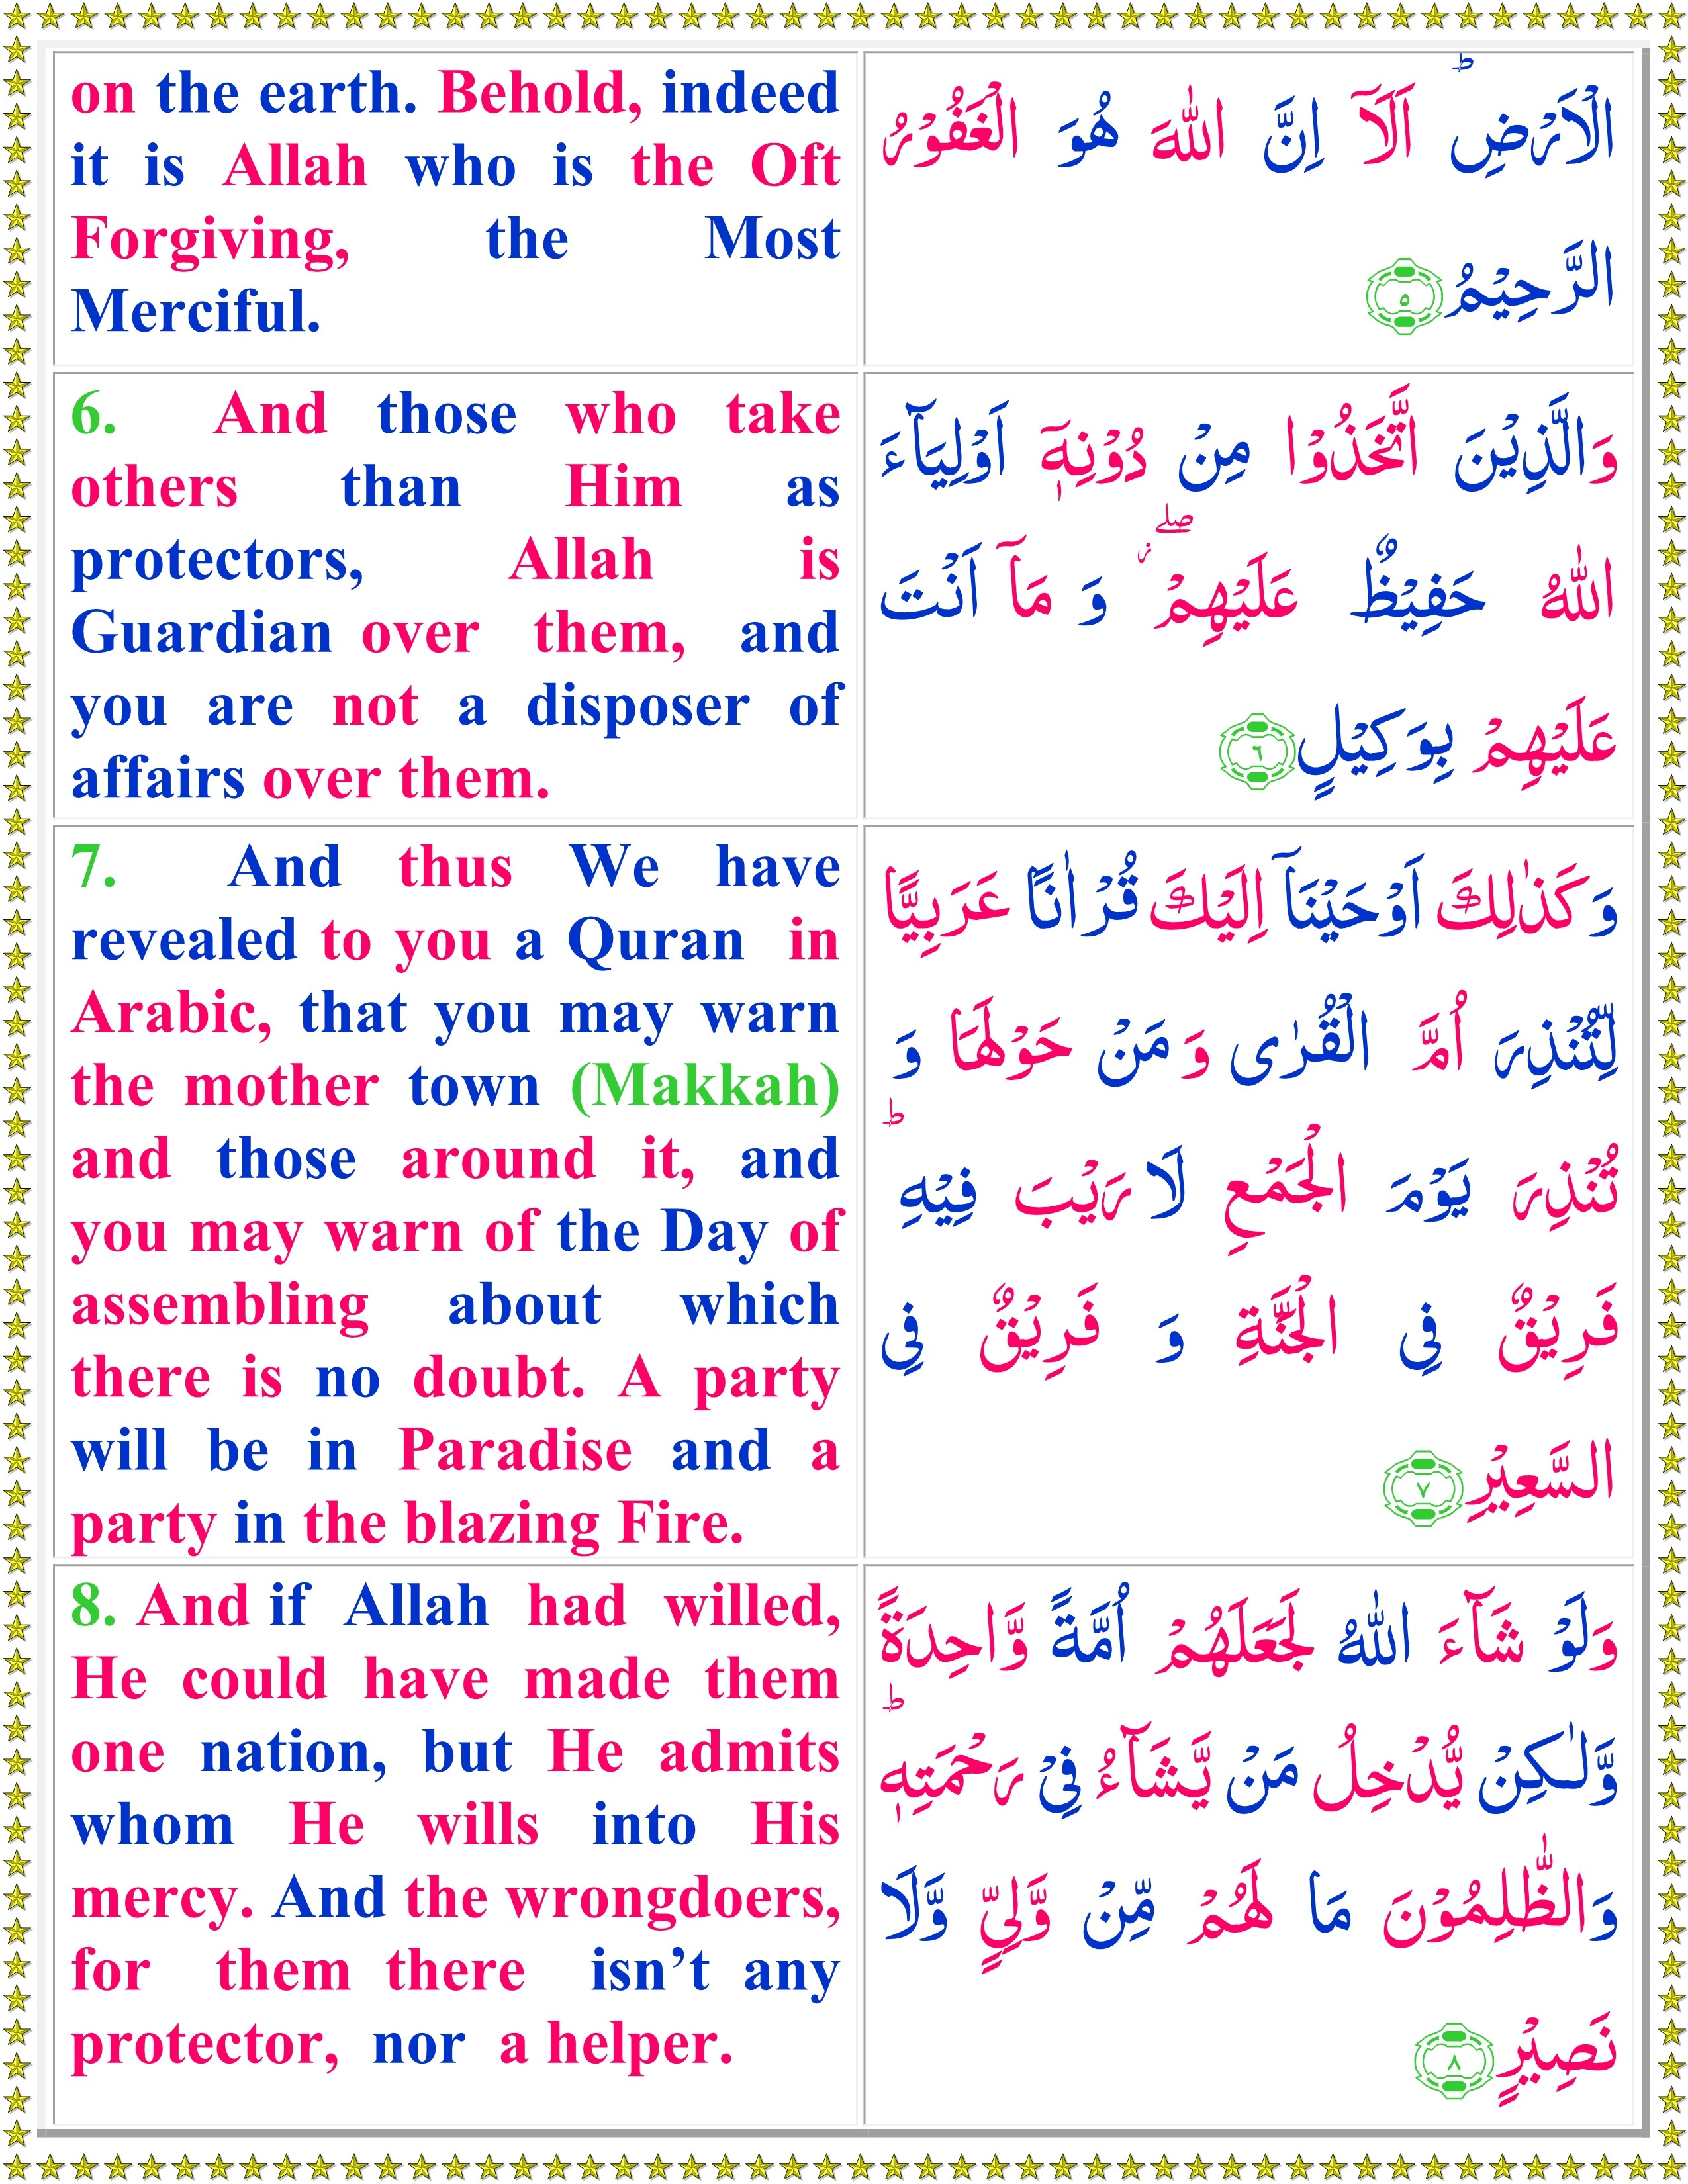 on the earth. Behold, indeed
it is Allah who is the Oft
Forgiving, the Most
Merciful.
الْاَرْضِ ؕ اَلَاۤ اِنَّ اللّٰهَ هُوَ الْغَفُوْرُ
الرَّحِيْمُ ٥
6. And those who take
others than Him as
protectors, Allah is
Guardian over them, and
you are not a disposer of
affairs over them.
وَالَّذِيْنَ اتَّخَذُوْا مِنْ دُوْنِهٖۤ اَوْلِيَآءَ
اللّٰهُ حَفِيْظٌ عَلَيْهِمْ ۖ ز وَ مَاۤ اَنْتَ
عَلَيْهِمْ بِوَكِيْلٍ ٦
7. And thus We have
revealed to you a Quran in
Arabic, that you may warn
the mother town (Makkah)
and those around it, and
you may warn of the Day of
assembling about which
there is no doubt. A party
will be in Paradise and a
party in the blazing Fire.
وَكَذٰلِكَ اَوْحَيْنَاۤ اِلَيْكَ قُرْاٰنًا عَرَبِيًّا
لِّتُنْذِرَ اُمَّ الْقُرٰى وَمَنْ حَوْلَهَا وَ
تُنْذِرَ يَوْمَ الْجَمْعِ لَا رَيْبَ فِيْهِ ؕ
فَرِيْقٌ فِى الْجَنَّةِ وَ فَرِيْقٌ فِى
السَّعِيْرِ ٧
8. And if Allah had willed,
He could have made them
one nation, but He admits
whom He wills into His
mercy. And the wrongdoers,
for them there isn’t any
protector, nor a helper.
وَلَوْ شَآءَ اللّٰهُ لَجَعَلَهُمْ اُمَّةً وَّاحِدَةً
وَّلٰـكِنْ يُّدْخِلُ مَنْ يَّشَآءُ فِىْ رَحْمَتِهٖ ؕ
وَالظّٰلِمُوْنَ مَا لَهُمْ مِّنْ وَّلِىٍّ وَّلَا
نَصِيْرٍ ٨